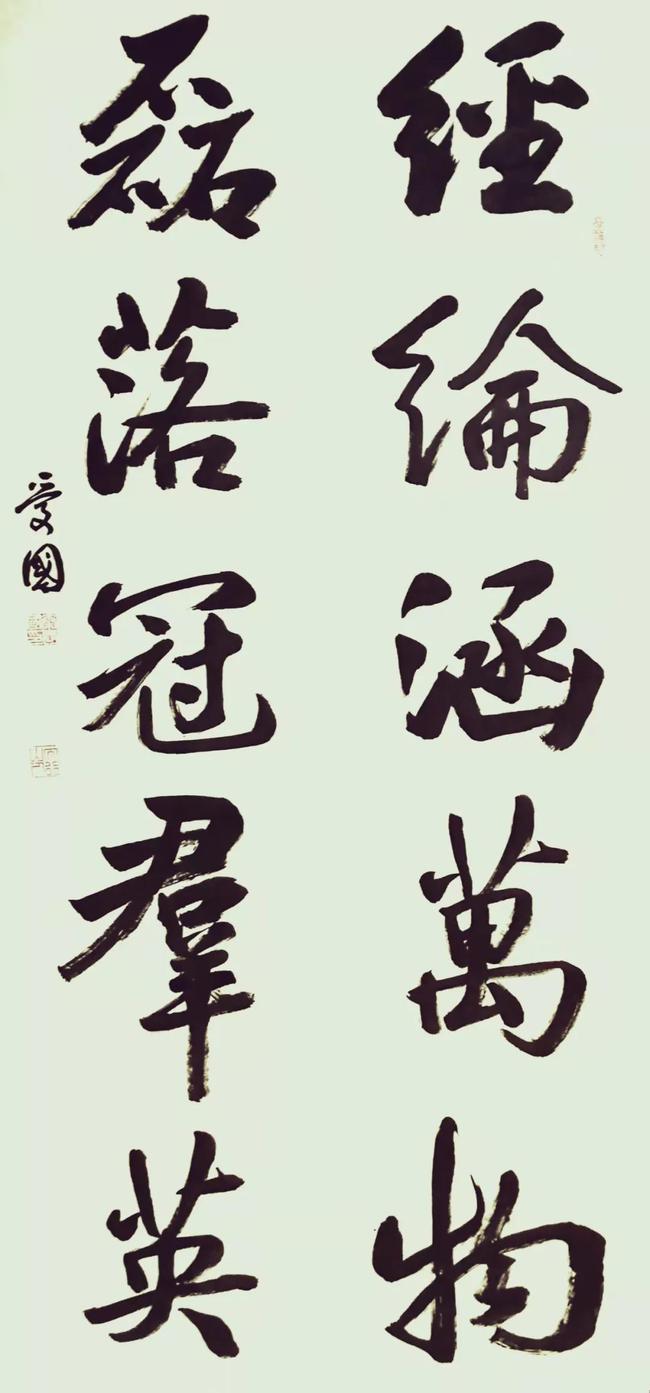 經綸涵萬物
磊落冠羣英
愛國